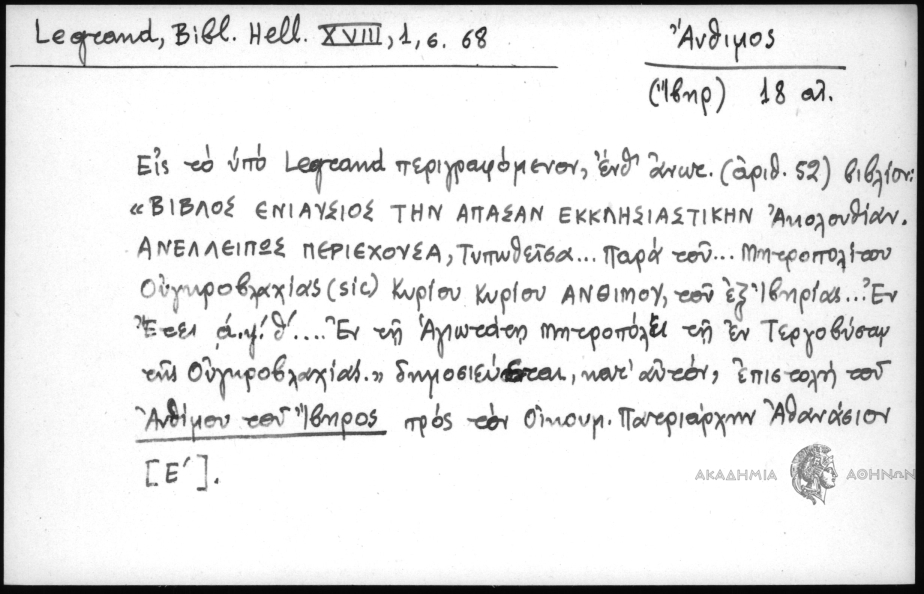 Legrand, Bibl. Hell. XVIII, 1, σ. 68
Ἄνθιμος
(Ἴβηρ) 18 αἰ.
Εἰς τό ὑπό Legrand περιγραφόμενον, ἔνθ' ἄνωτ. (ἀριθ. 52) βιβλίον:
«ΒΙΒΛΟΣ ΕΝΙΑΥΣΙΟΣ ΤΗΝ ΑΠΑΣΑΝ ΕΚΚΛΗΣΙΑΣΤΙΚΗΝ Ἀκολουθίαν.
ΑΝΕΛΛΕΙΠΩΣ ΠΕΡΙΕΧΟΥΣΑ, Τυπωθεῖσα... Παρά τοῦ... Μητροπολίτου
Οὑγκροβλαχίας (sic) Κυρίου Κυρίου ΑΝΘΙΜΟΥ, τοῦ ἐξ Ἰβηρίας... Ἐν
Ἔτει ͵ά.ψ.' θ'.... Ἐν τῇ Ἁγιωτάτῃ Μητροπόλει τῇ ἐν Τεργοβύστῳ
τῆς Οὑγκροβλαχίας.» δημοσιεύεται, κατ' αὐτόν, ἐπιστολή τοῦ
Ἀνθίμου τοῦ Ἴβηρος πρός τόν Οἰκουμ. Πατριάρχην Ἀθανάσιον
[Ε'].
ΑΚΑΔΗΜΙΑ ΑΘΗΝΩΝ